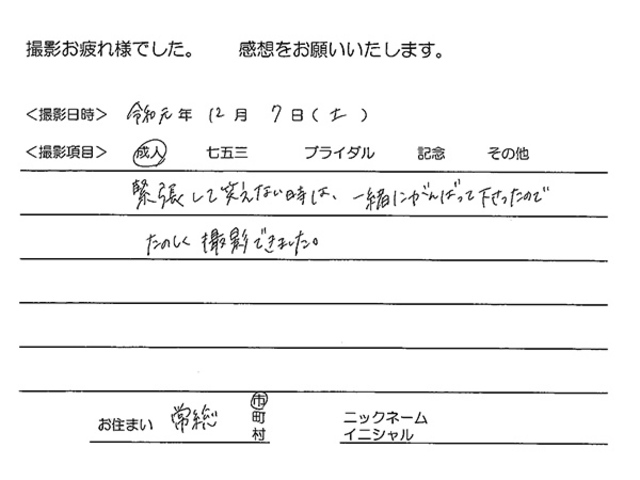 撮影お疲れ様でした。 感想をお願いいたします。
＜撮影日時＞ 令和元年 12月 7日(土)
＜撮影項目＞ 成人 七五三 ブライダル 記念 その他
緊張して笑えない時は、一緒にがんばって下さったので
たのしく撮影できました。
お住まい 常総 市
町
村
ニックネーム
イニシャル